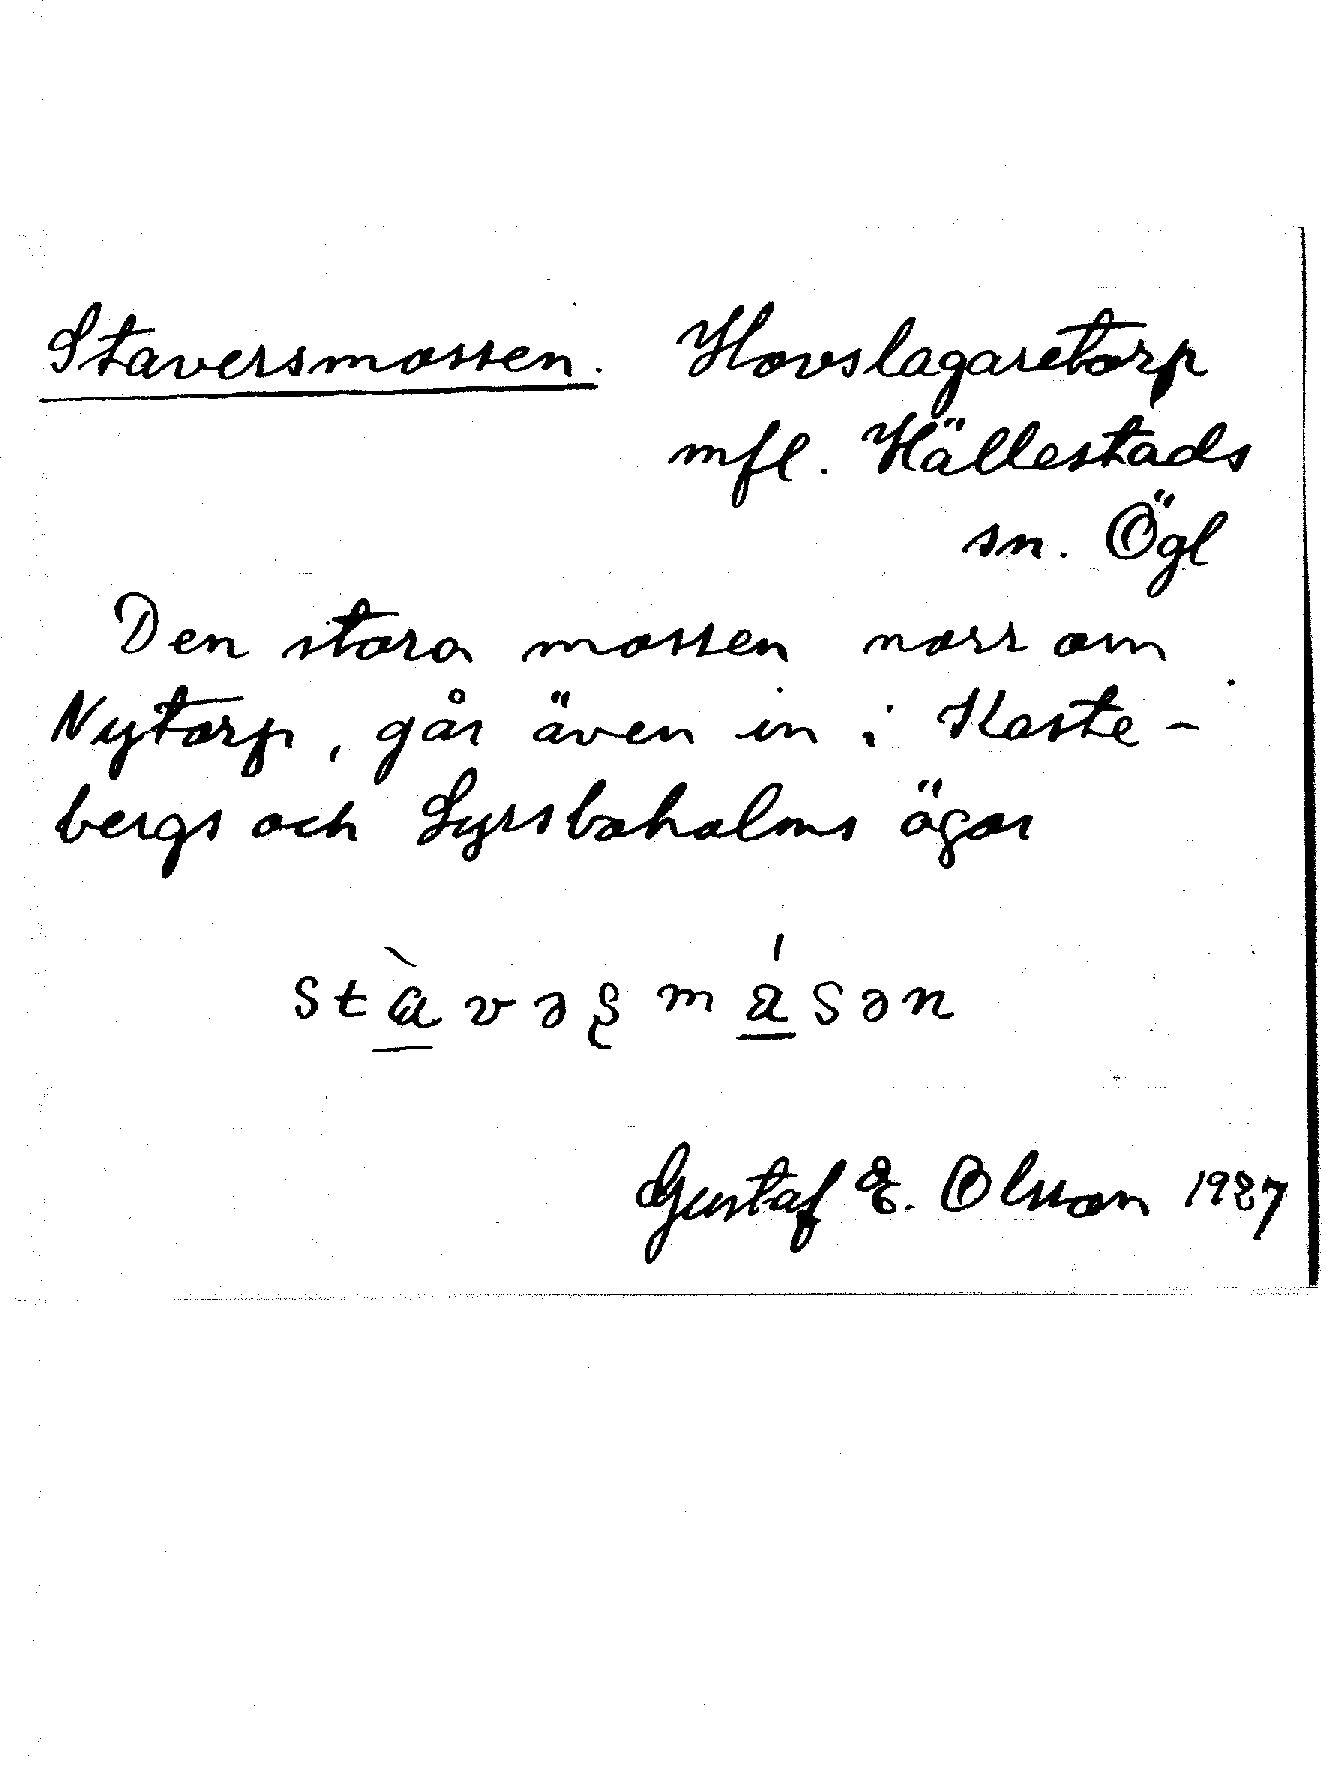 Staversmossen. Hovslagaretorp
mfl. Hällestads
sn. Ögl
Den stora mossen norr om
Nytorp, går även in i Kaste-
bergs och Syrsboholms ägor
stàvəʂmásən
Gustaf E. Olsson 1927